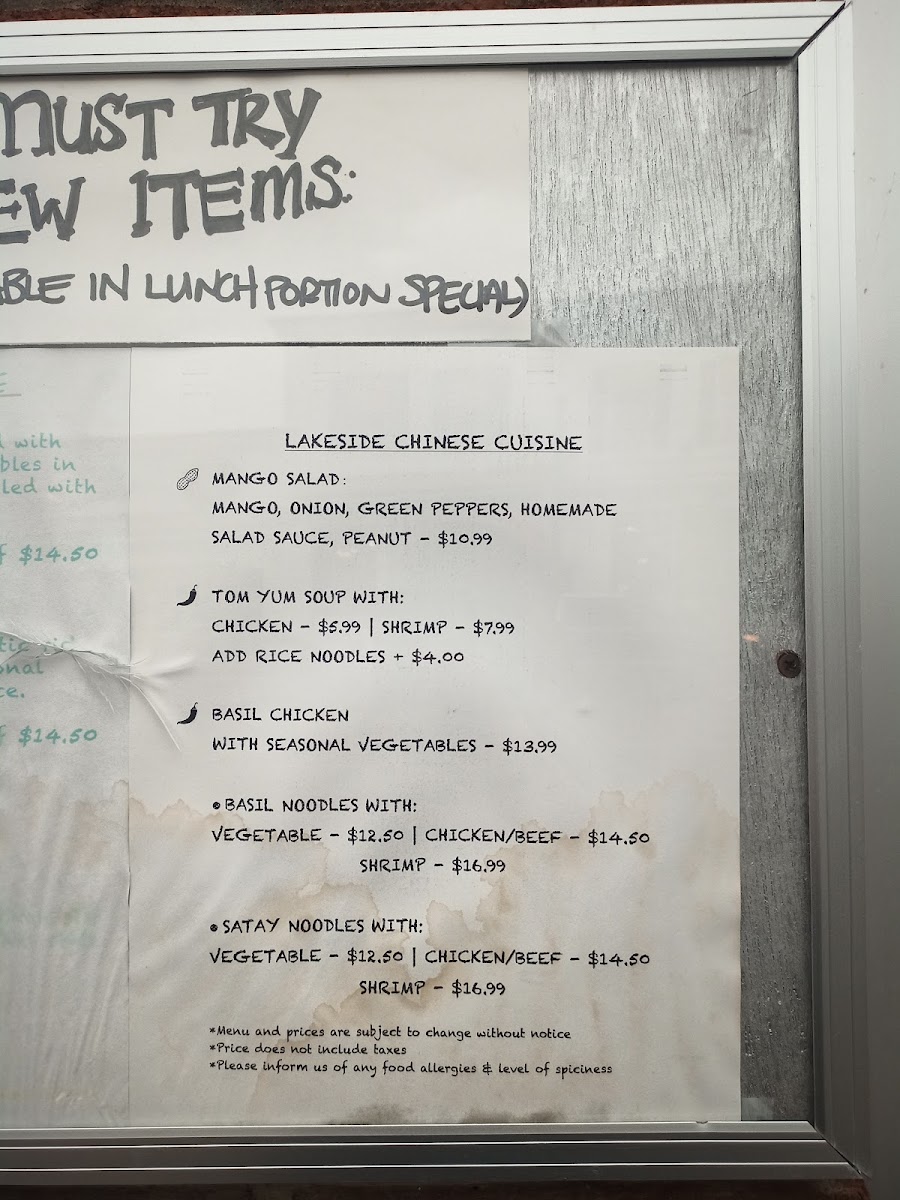 MUST TRY
ITEMS:
IN LUNCH PORTION SPECIAL)
with
in
with
$14.50
$14.50
LAKESIDE CHINESE CUISINE
MANGO SALAD:
MANGO, ONION, GREEN PEPPERS, HOMEMADE
SALAD SAUCE, PEANUT - $10.99
TOM YUM SOUP WITH:
CHICKEN - $5.99 | SHRIMP - $7.99
ADD RICE NOODLES + $4.00
BASIL CHICKEN
WITH SEASONAL VEGETABLES - $13.99
•BASIL NOODLES WITH:
VEGETABLE - $12.50 | CHICKEN/BEEF - $14.50
SHRIMP - $16.99
•SATAY NOODLES WITH:
VEGETABLE - $12.50 | CHICKEN/BEEF - $14.50
SHRIMP - $16.99
*Menu and prices are subject to change without notice
*Price does not include taxes
*Please inform us of any food allergies & level of spiciness